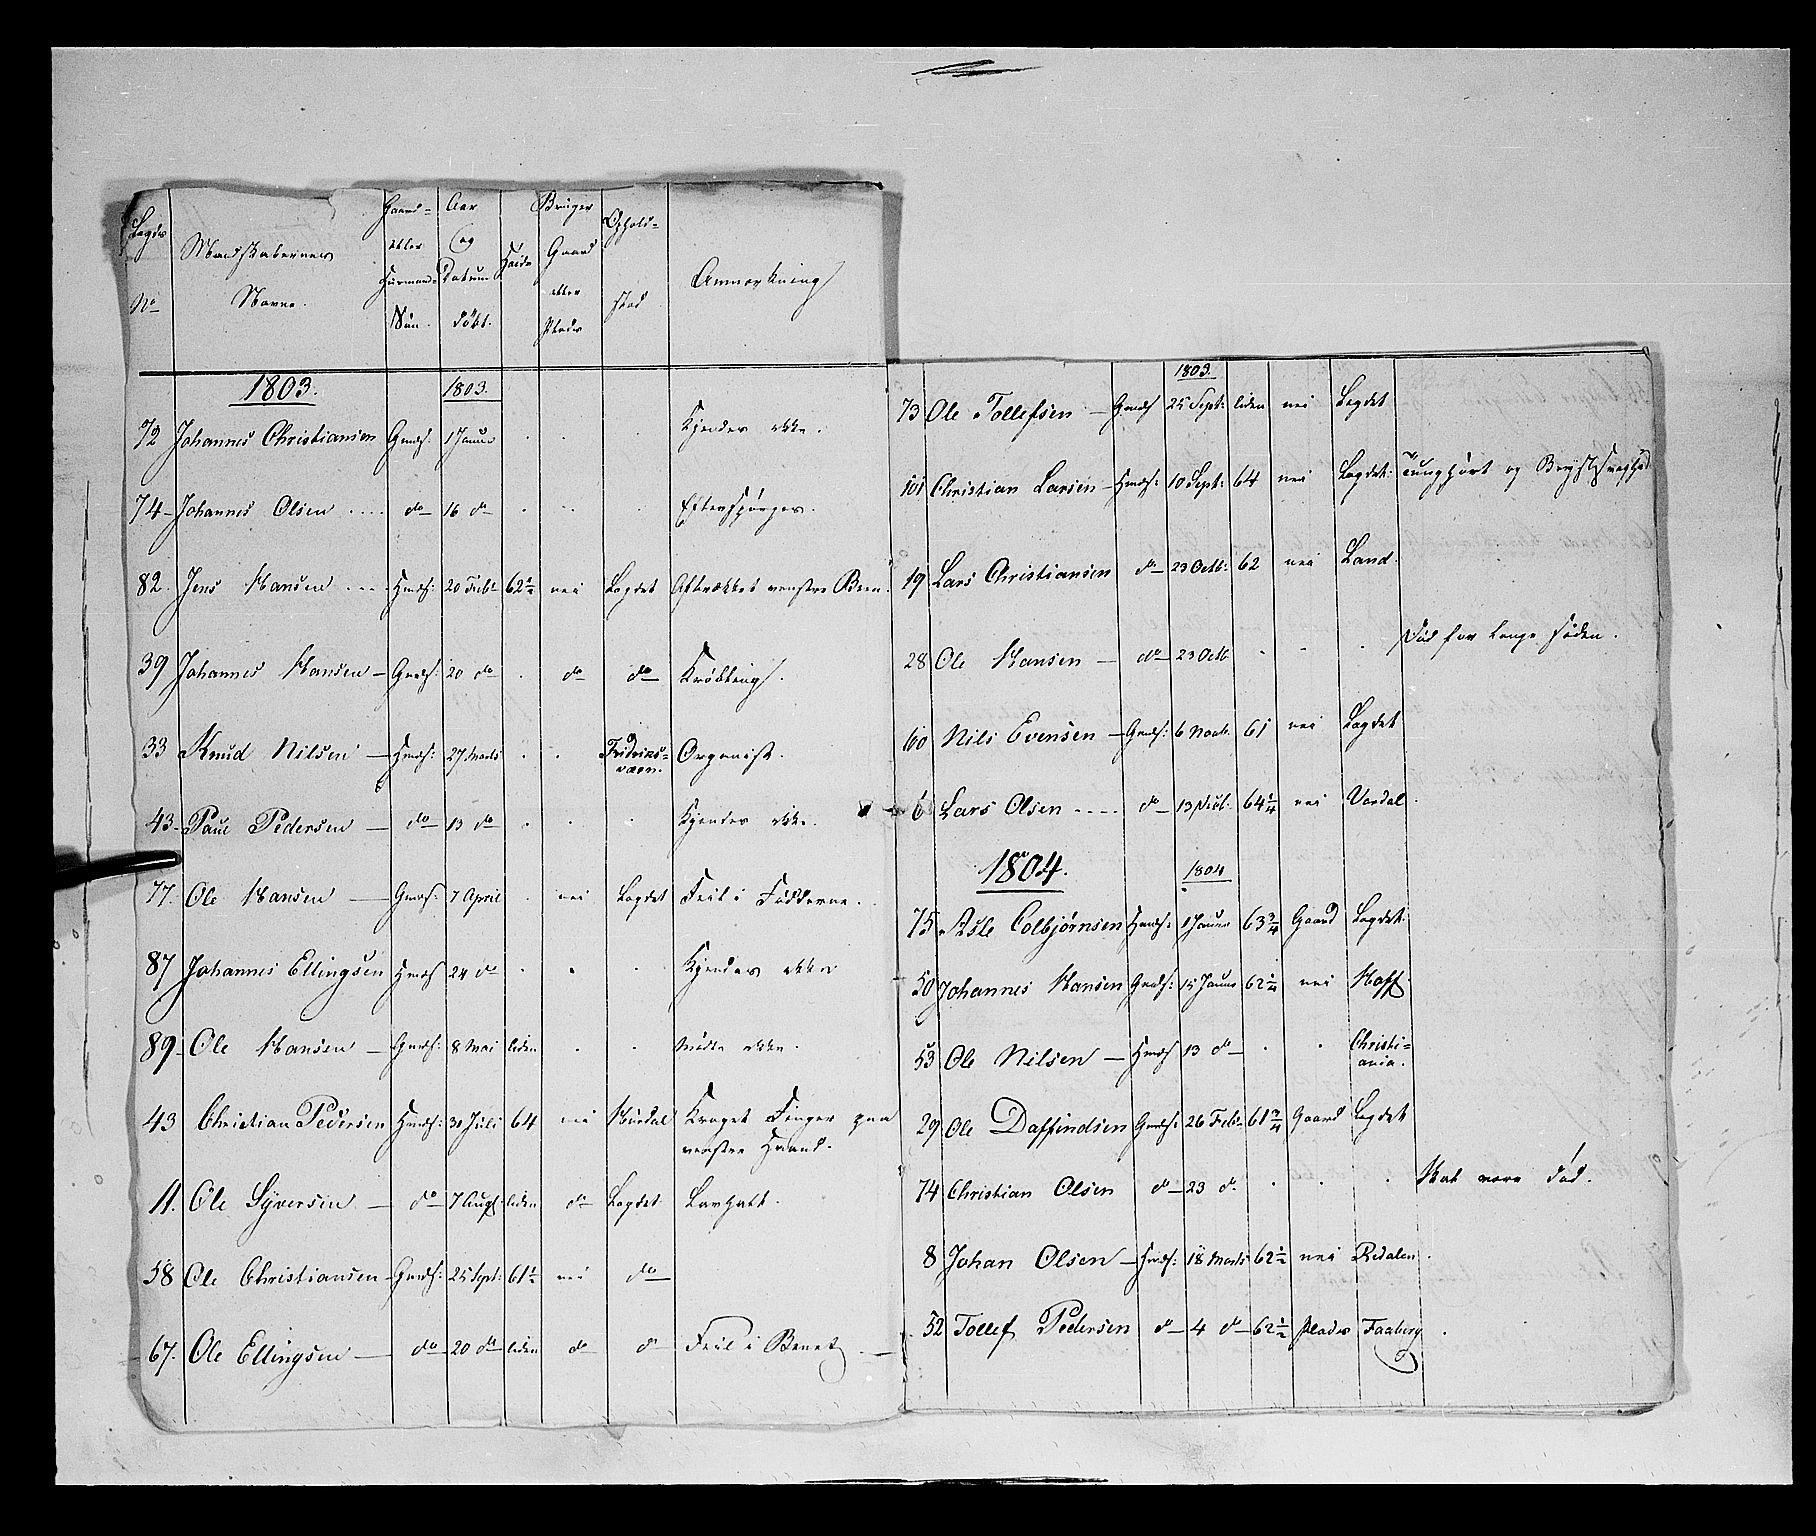 Lægds No
Mandskabernes Navne.
Gaard- eller Huusmands Søn.
Aar og Datum Født.
Høide
Bruger Gaard eller Plads
Ophold- sted
Anmærkning
1803. 1803.
72 Johannes Christiansen Gmds: 1 Januar . . . Kjendes ikke.
74 Johannes Olsen .... do 16 do . . . Efterspørges.
82. Jens Hansen .... Hmds: 20 Febr 62 1/2 nei Lægdet Afbrækket venstre Been.
39 Johannes Hansen Gmds: 20 do . do do Krøbling.
33 Knud Nilsen Hmds: 27 Marts . . Fridriks-værn. Organist.
43 Paul Pedersen do 13 do . . . Kjendes ikke.
77. Ole Hansen Gmds: 7 April . nei Lægdet Feil i Fødderne.
87 Johannes Ellingsen Hmds 24 do . . . Kjendes ikke
89 Ole Hansen Gmds: 8 Mai liden . . Mødte ikke.
43 Christian Pedersen Hmds: 30 Juli 64 nei Hurdal Kroget Finger paa
venstre Haand.
11. Ole Syversen do 7 Augt liden do Lægdet Lavhalt.
58 Ole Christiansen Gmds: 25 Sept: 61 1/2 nei do
67. Ole Ellingsen do 20 do liden do do Feil i Benet
1803.
73 Ole Tollefsen Gmds 25 Sept: liden nei Lægdet
101 Christian Larsen Hmds: 10 Sept: 64 nei Lægdet: Tunghørt og Brystsvaghed
19 Lars Christiansen do 23 Octb: 62 nei Land.
28 Ole Hansen do 23 Octb . . . Død for længe siden.
60 Nils Evensen Gmds: 6 Novb. 61 nei Lægdet
6 Lars Olsen .... do 13 64 1/4 nei Vardal.
1804. 1804
75 Asle Colbjørnsen Hmds: 1 Januar 63 3/4 Gaard Lægdet.
50 Johannes Hansen Gmds: 15 Januar 62 1/4 nei Hoff.
53 Ole Nilsen Hmds 13 do . . Christi-
ania.
29 Ole Daffindsen Gmds: 26 Febr 61 3/4 Gaard Lægdet
74 Christian Olsen do 23 do . . . Skal være død.
8 Johan Olsen Hmds: 18 Marts 62 1/2 nei Redalen.
52 Tollef Pedersen do 4 do 62 1/2 Plads Faaberg.